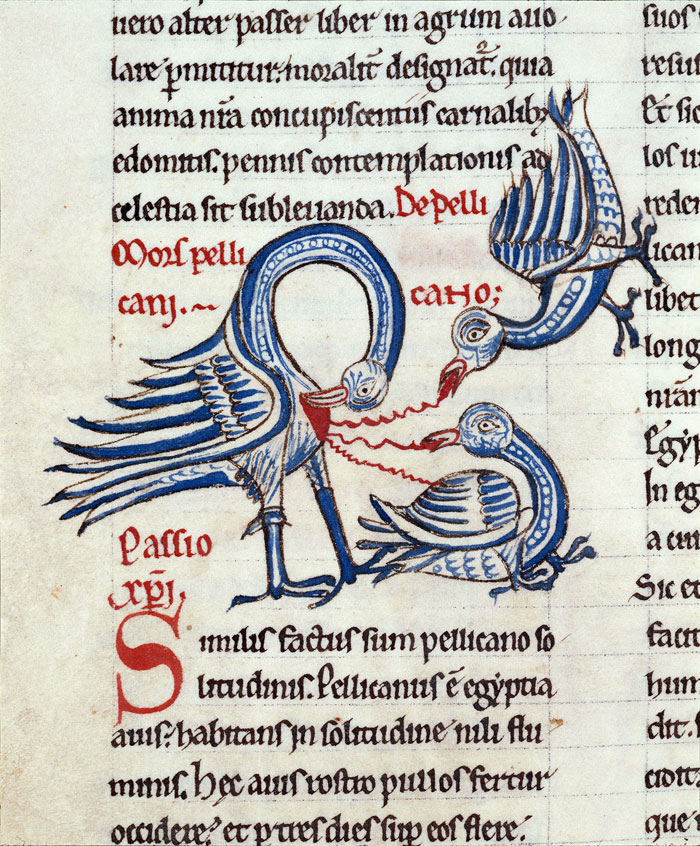 uero alter passer liber in agrum auo
lare ꝑmittitur. moralit̄ designat᷑. quia
anima nr̄a concupiscentiis carnalibꝫ
edomitis. pennis contemplationis ad
celestia sit subleuanda. De pelli
Mors pelli
cani.
cano;
Passio
xp̄i.
Similis factus sum pellicano so
litudinis. Pellicanus ē egyptia
auis. habitans in solitudine nili flu
minis. Hec auis rostro pullos fertur
occidere. et ꝑ tres dies suꝑ eos flere.
suos
resus
Et sic
los in
reden
lican
libet
long
niam
Egyp
In eg
a cui
Sic et
facit
hum
dit. s
que